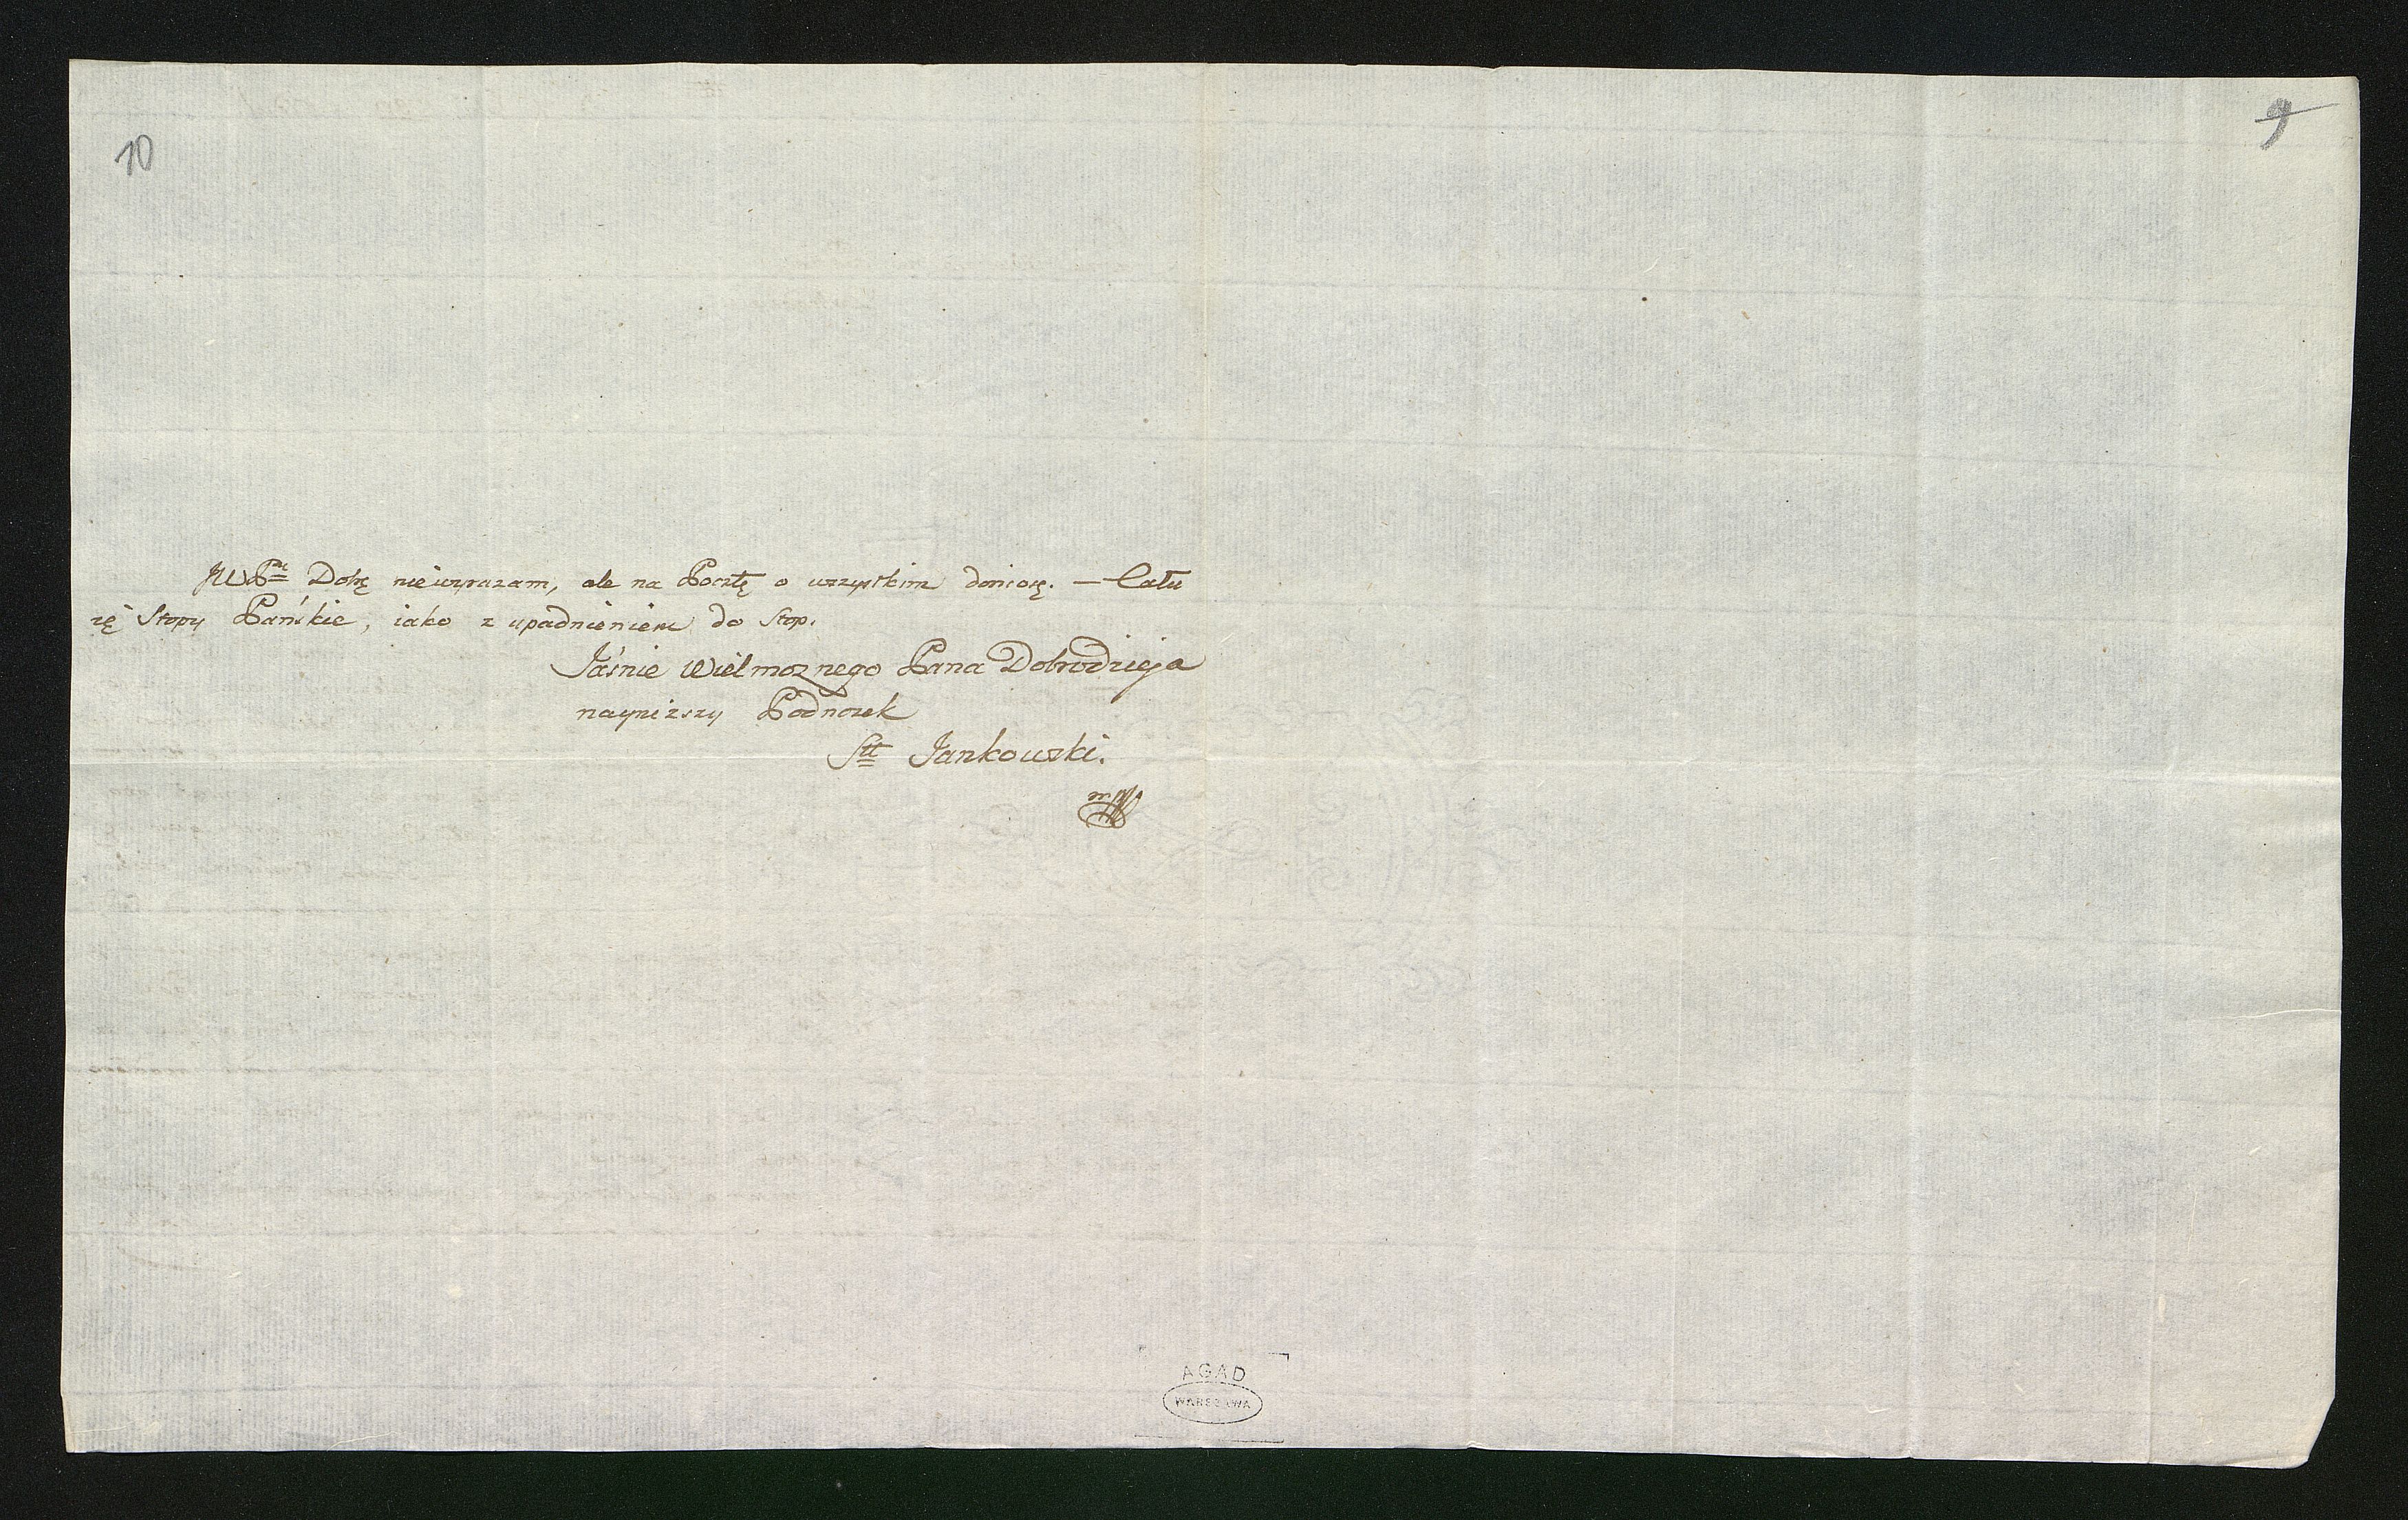 10
9
JWPa Dobę niewyrazam, ale na Pocztę o wszystkim doniosę. — Cału
ię Stopy Pańskie, iako z upadnieniem do Stop.
Jaśnie Wielmoznego Pana Dobrodzieja
nayniższy Podnożek
Stt Jankowski.
mp
AGAD
WARSZAWA